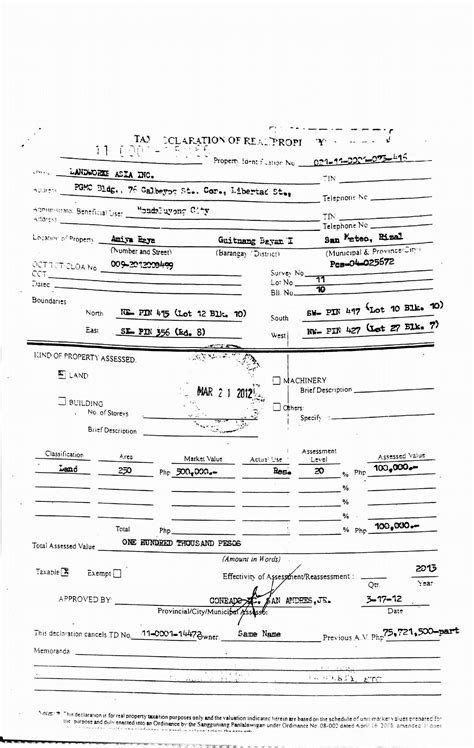 TAX DECLARATION OF REAL PROPERTY
Property Identification No. 021-11-0001-073-415
LANDWORKS ASIA INC. TIN
Address PGMC Bldg., 76 Calbayog St. Cor., Libertad St., Telephone No
Administrator Beneficial User: Mandaluyong City TIN
Address Telephone No
Location of Property Amiya Raya Guitnang Bayan I San Mateo, Rizal
(Number and Street) (Barangay / District) (Municipal & Province/City)
OCT TCT CLOA No 009-2012008499 Survey No Pcs-04-025672
CCT Lot No 11
Dated Blk. No 10
Boundaries
North NE- PIN 415 (Lot 12 Blk. 10) South SW- PIN 417 (Lot 10 Blk. 10)
East SE- PIN 356 (Rd. 8) West NW- PIN 427 (Lot 27 Blk. 7)
KIND OF PROPERTY ASSESSED:
LAND MACHINERY
Brief Description
MAR 21 2012
BUILDING Others:
No. of Storeys Specify
Brief Description
Classification Area Market Value Actual Use Assessment Level Assessed Value
Land 250 Php 500,000.- Res. 20 % Php 100,000.-
%
%
%
Total Php Php 100,000.-
Total Assessed Value ONE HUNDRED THOUSAND PESOS
(Amount in Words)
Taxable Exempt Effectivity of Assessment/Reassessment : 2013
Qtr. Year
APPROVED BY: SAN ANDRES, JR. 3-17-12
Provincial/City/Municipal Assessor Date
This declaration cancels TD No. 11-0001-14473 Owner: Same Name Previous A.V. Php 75,721,500-part
Memoranda
Notes: This declaration is for real property taxation purposes only and the valuation indicated herein are based on the schedule of unit market values prepared for
the purpose and duly enacted into an Ordinance by the Sangguniang Panlalawigan under Ordinance No. 08-002 dated April 16, 2008